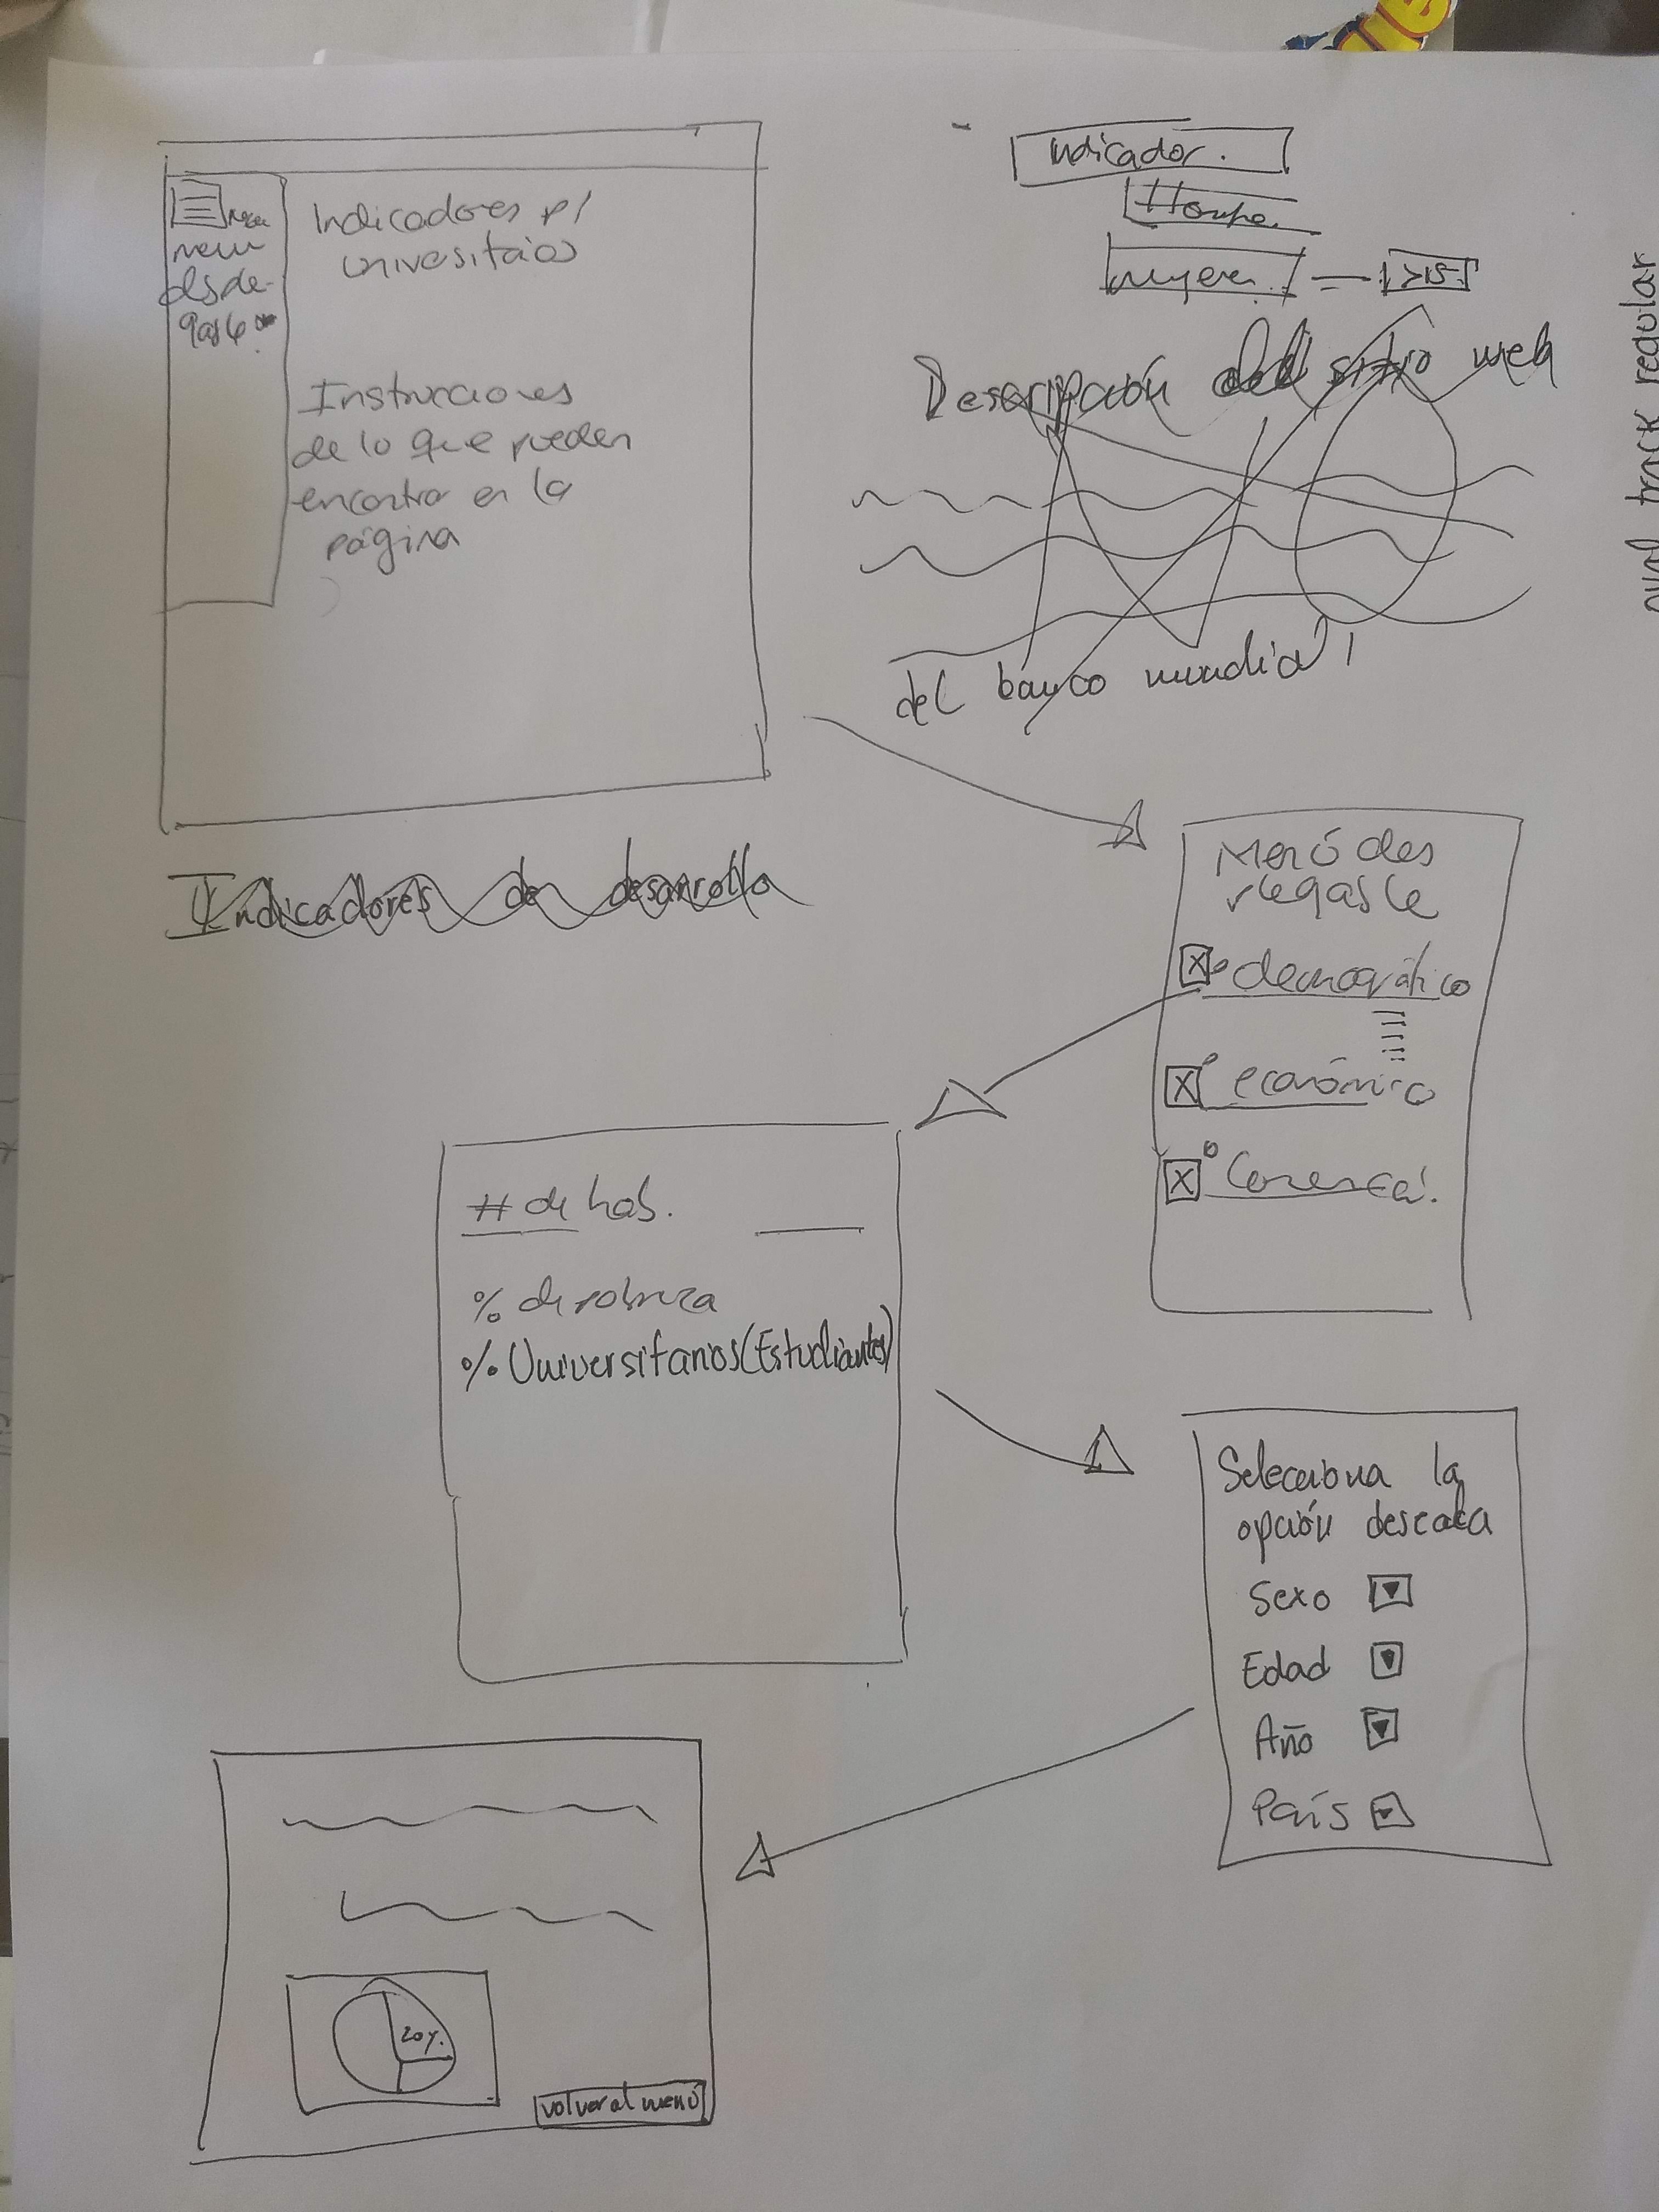 Indicador.
Indicadores p/
univesitaios
menu
desde-
gable
Instrucciones
de lo que pueden
encontra en la
página
mujeres
>15
Descripción del sitio web
del banco mundial
Indicadores de desarrollo
Menú des
plegable
demográfico
económico
# de hab.
% de pobreza
% Universitarios (Estudiantes)
Selecciona la
opción deseada
Sexo
Edad
Año
País
20%
volver al menú
oval track regular